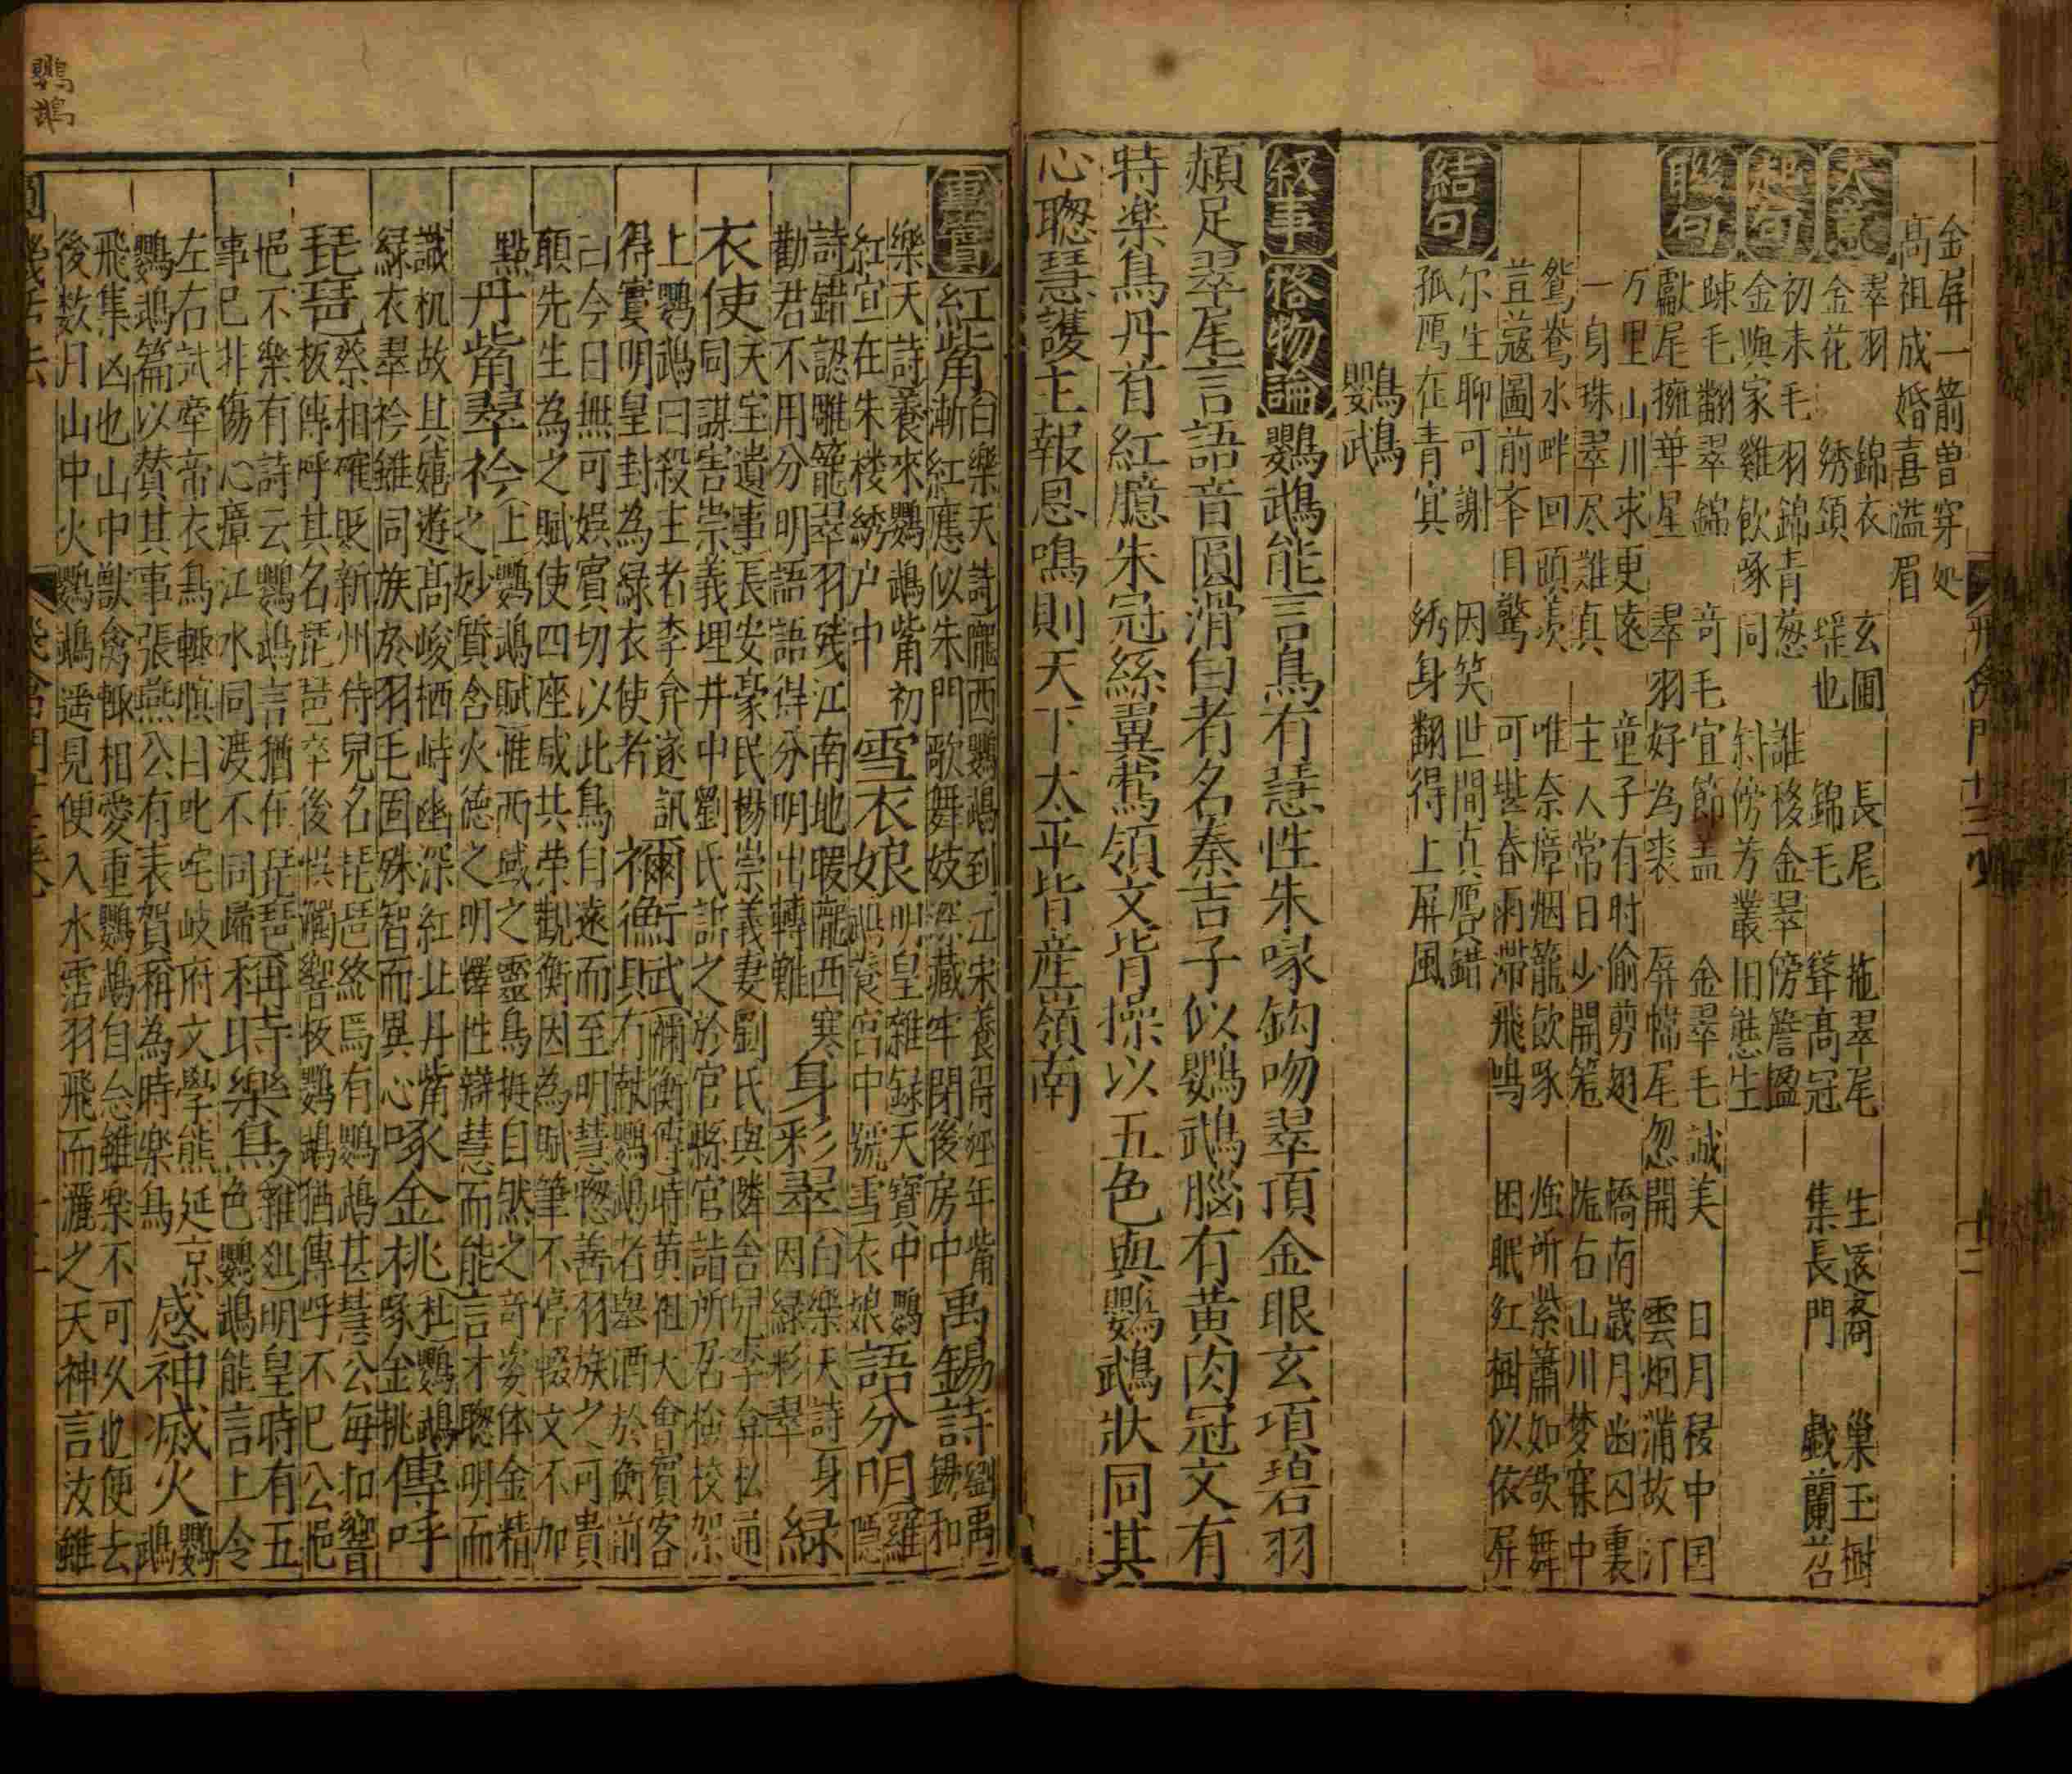 金屏一箭曾穿処
高祖成婚喜溢眉
大意
翠羽 錦衣 玄圃 長尾 拖翠尾 生遐裔 巢玉樹
金花 綉頷 瑶也 錦毛 聳高冠 集長門 戯蘭苕
起句
初来毛羽錦青葱 誰梭金翠傍簷楹
金與家雞飲啄同 斜傍芳叢旧態生
聮句
踈毛翻翠錦 竒毛宜節盖 金翠毛誠美 日月稜中国
獻尾擁華星 翠羽好為裘 屏幃尾忽開 雲烟浦故汀
万里山川求更遠 童子有时偷剪翅 橋南歲月凾囚裏
一身珠翠尽難真 主人常日少開篭 隴右山川梦寐中
鴛鴦水畔回頭羡 唯奈瘴烟籠飲啄 煌所縈簫如欲舞
荳蔻圖前夲目驚 可堪春雨滞飛鳴 困眠紅樹似依屏
結句
尔生聊可謝 因笑世間真贋錯
孤鴈在青冥 綉身翻得上屏風
鸚鵡
叙事 格物論 鸚鵡能言鳥有慧性朱喙鈎吻翠頂金眼玄項碧羽
頳足翠尾言語音圓滑白者名秦吉子似鸚鵡腦有黄肉冠文有
特楽鳥丹首紅臆朱冠絲翼鶯領文背操以五色與鸚鵡狀同其
心聦慧護主報恩鳴則天下太平皆産嶺南
事實 紅觜 白樂天詩隴西鸚鵡到江宋養得經年觜
漸紅應似朱門歌舞妓深藏牢閉後房中 禹錫詩 劉禹錫和
樂天詩養來鸚鵡觜初
紅宜在朱楼綉户中 雪衣娘 明皇雜録天寶中鸚
鵡養宫中號雪衣娘 語分明 羅隠
詩錯認雕籠翠羽残江南地暖隴西寒
勸君不用分明語語得分明出轉難 身彩翠 白樂天詩身
因緑彩翠 緑
衣使 天宝遺事長安豪民楊崇義妻劉氏與隣舍兒李弇私通
同謀害崇義埋井中劉氏訴之於官縣官詣所居檢校架
上鸚鵡曰殺主者李弇遂訊
得實明皇封為緑衣使者 禰衡武 禰衡傳時黄祖大會賓客
具有献鸚鵡者舉酒於衡前
曰今日無可娯賓切以此鳥自遠而至明慧聦善羽族之可貴
願先生為之賦使四座咸共荣觀衡因為賦筆不停輟文不加
點 丹觜翠衿 上鸚鵡賦惟西域之靈鳥挺自然之竒姿体金精
之妙質含火德之明輝性辯慧而能言才聦明而
識机故其嬉遊高峻栖峙幽深紅趾丹觜
緑衣翠衿雖同族於羽毛固殊智而異心 啄金桃 杜鸚鵡
啄金桃 傳呼
琵琶 蔡相確貶新州侍兒名琵琶終焉有鸚鵡甚慧公每扣響
板傳呼其名琵琶卒後悞觸響板鸚鵡猶傳呼不已公悒
悒不樂有詩云鸚鵡言猶在琵琶
事已非傷心瘴江水同渡不同歸 再時樂鳥 雜爼明皇時有五
色鸚鵡能言上令
左右試牽帝衣鳥輒嗔目叱咤岐府文學熊延京
鸚鵡篇以賛其事張燕公有表賀稱為時楽鳥 感神滅火 鸚
鵡
飛集凶也山中獣禽輒相愛重鸚鵡自念雖楽不可久也便去
後数月山中火鸚鵡遥見便入水霑羽飛而灑之天神言汝雖